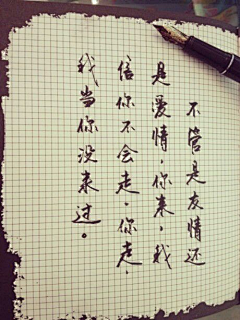 不管是友情还
是爱情，你来，我
信你不会走，你走，
我当你没来过。